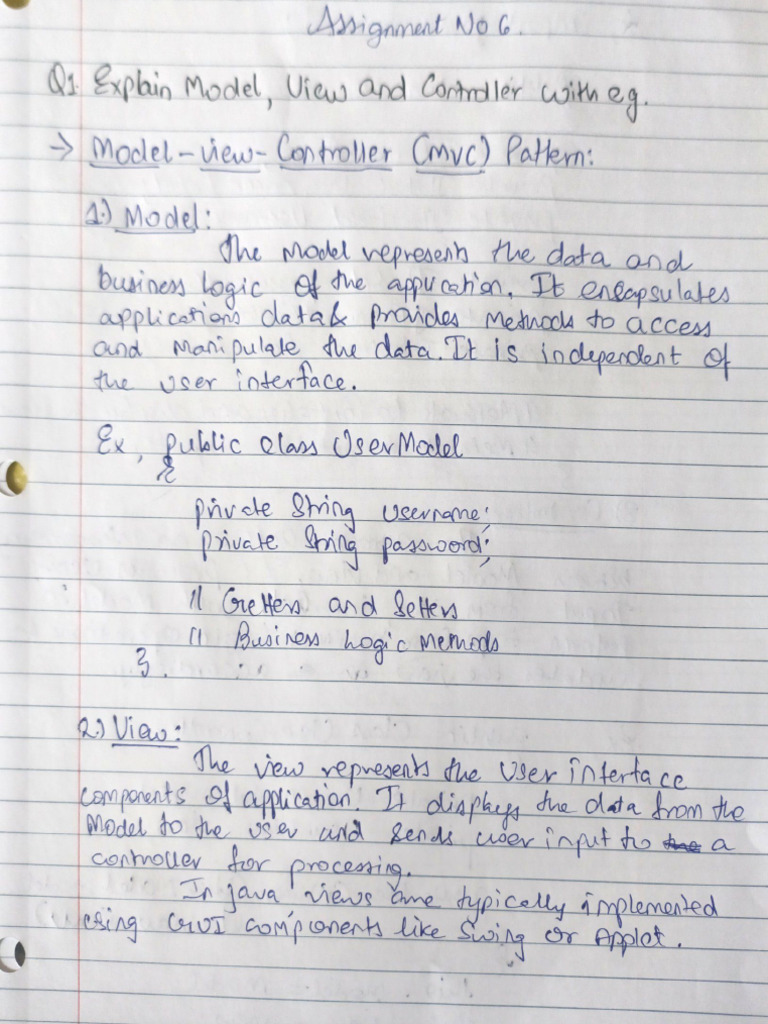 Assignment No 6.
Q1. Explain Model, View and Controller with eg.
→ Model-view-Controller (MVC) Pattern:
1.) Model:
The Model represents the data and
business logic of the application. It encapsulates
applications data & provides methods to access
and manipulate the data. It is independent of
the user interface.
Ex, public class UserModel
{
private String username;
private String password;
// Getters and Setters
// Business Logic Methods
}.
2.) View:
The view represents the user interface
components of application. It displays the data from the
Model to the user and sends user input to a
controller for processing.
In java views are typically implemented
using GUI components like Swing or Applet.